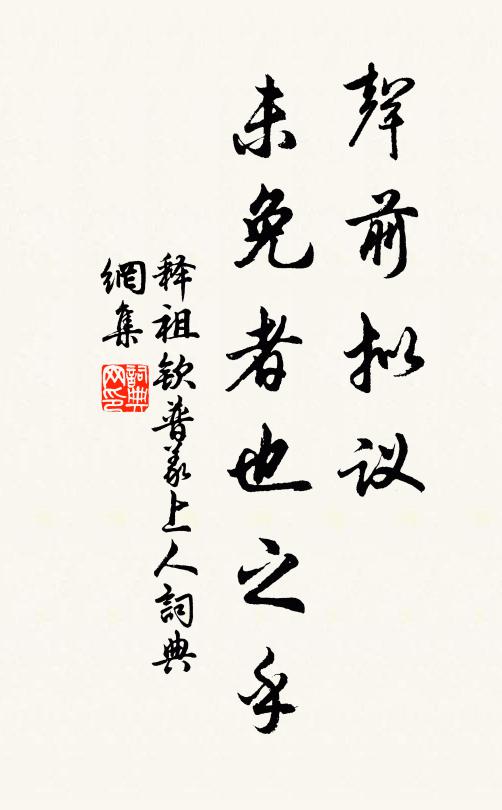 聲前拟议
未免者也之乎
释祖钦普义上人詞典
網集
詞典
网印